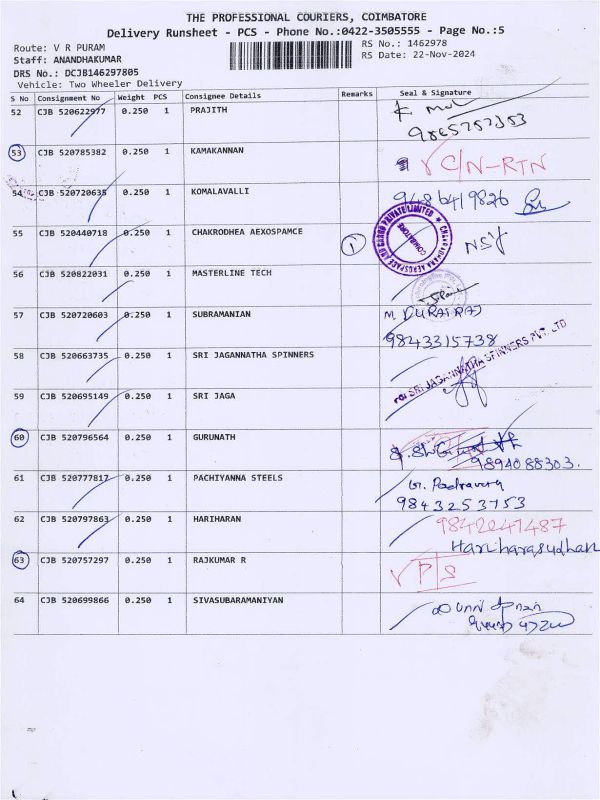 THE PROFESSIONAL COURIERS, COIMBATORE
Delivery Runsheet - PCS - Phone No.:0422-3505555 - Page No.:5
Route: V R PURAM
RS No.: 1462978
Staff: ANANDHAKUMAR
RS Date: 22-Nov-2024
DRS No.: DCJB146297805
Vehicle: Two Wheeler Delivery
S No Consignment No Weight PCS Consignee Details Remarks Seal & Signature
52 CJB 520622977 0.250 1 PRAJITH
9865757353
53 CJB 520785382 0.250 1 KAMAKANNAN C/N-RTN
54 CJB 520720635 0.250 1 KOMALAVALLI 9486419826
55 CJB 520440718 0.250 1 CHAKRODHEA AEXOSPAMCE 1 COIMBATORE
56 CJB 520822031 0.250 1 MASTERLINE TECH
57 CJB 520720603 0.250 1 SUBRAMANIAN M DURAIRAJ
9843315738
58 CJB 520663735 0.250 1 SRI JAGANNATHA SPINNERS For SRI JAGANNATHA SPINNERS PVT. LTD
59 CJB 520695149 0.250 1 SRI JAGA
60 CJB 520796564 0.250 1 GURUNATH
9894088303.
61 CJB 520777817 0.250 1 PACHIYANNA STEELS
9843253753
62 CJB 520797863 0.250 1 HARIHARAN 9842041487
Hariharasudhan
63 CJB 520757297 0.250 1 RAJKUMAR R P/S
64 CJB 520699866 0.250 1 SIVASUBARAMANIYAN